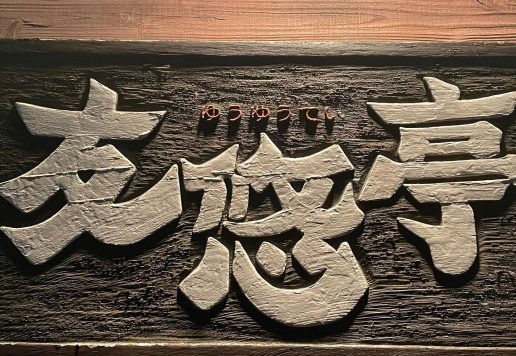 ゆうゆうてい
友悠亭